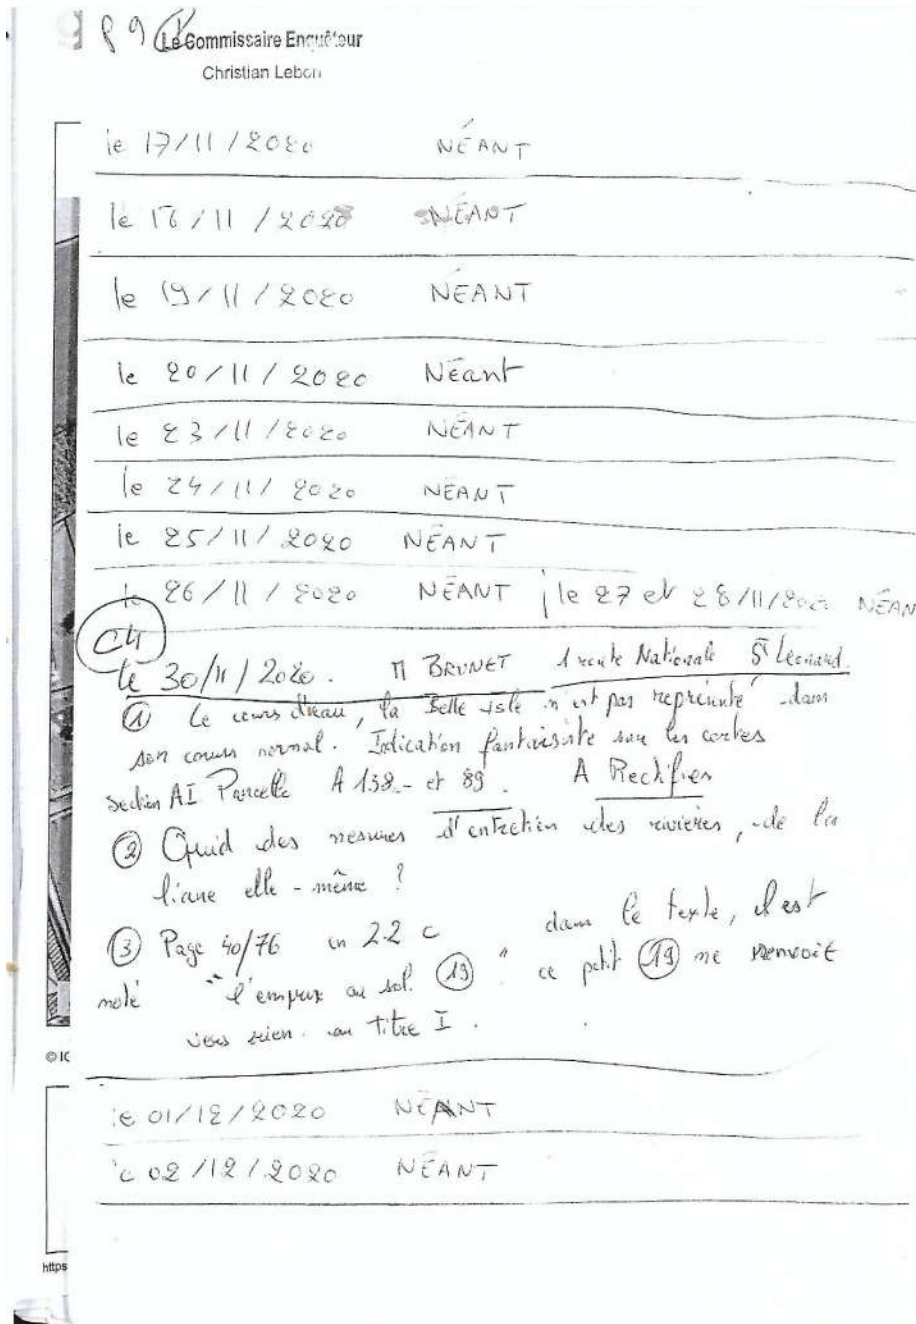 P 9 Le Commissaire Enquêteur
Christian Lebon
le 17/11/2020 NÉANT
le 16/11/2020 NÉANT
le 19/11/2020 NÉANT
le 20/11/2020 Néant
le 23/11/2020 NÉANT
le 24/11/2020 NÉANT
le 25/11/2020 NÉANT
le 26/11/2020 NÉANT le 27 et 28/11/2020 NÉAN
C4
le 30/11/2020. M BRUNET 1 route Nationale St Léonard.
① Le cours d'eau, la Belle isle n'est pas représenté dans
son cours normal. Indication fantaisiste sur les cartes
section AI Parcelle A 138 - et 89. A Rectifier
② Quid des mesures d'entretien des rivières, de la
liane elle-même ?
③ Page 40/76 en 2.2 c dans le texte, il est
noté "l'emprise au sol. ⑲" ce petit ⑲ ne renvoit
vers rien. au titre I.
© IG
le 01/12/2020 NÉANT
le 02/12/2020 NÉANT
https